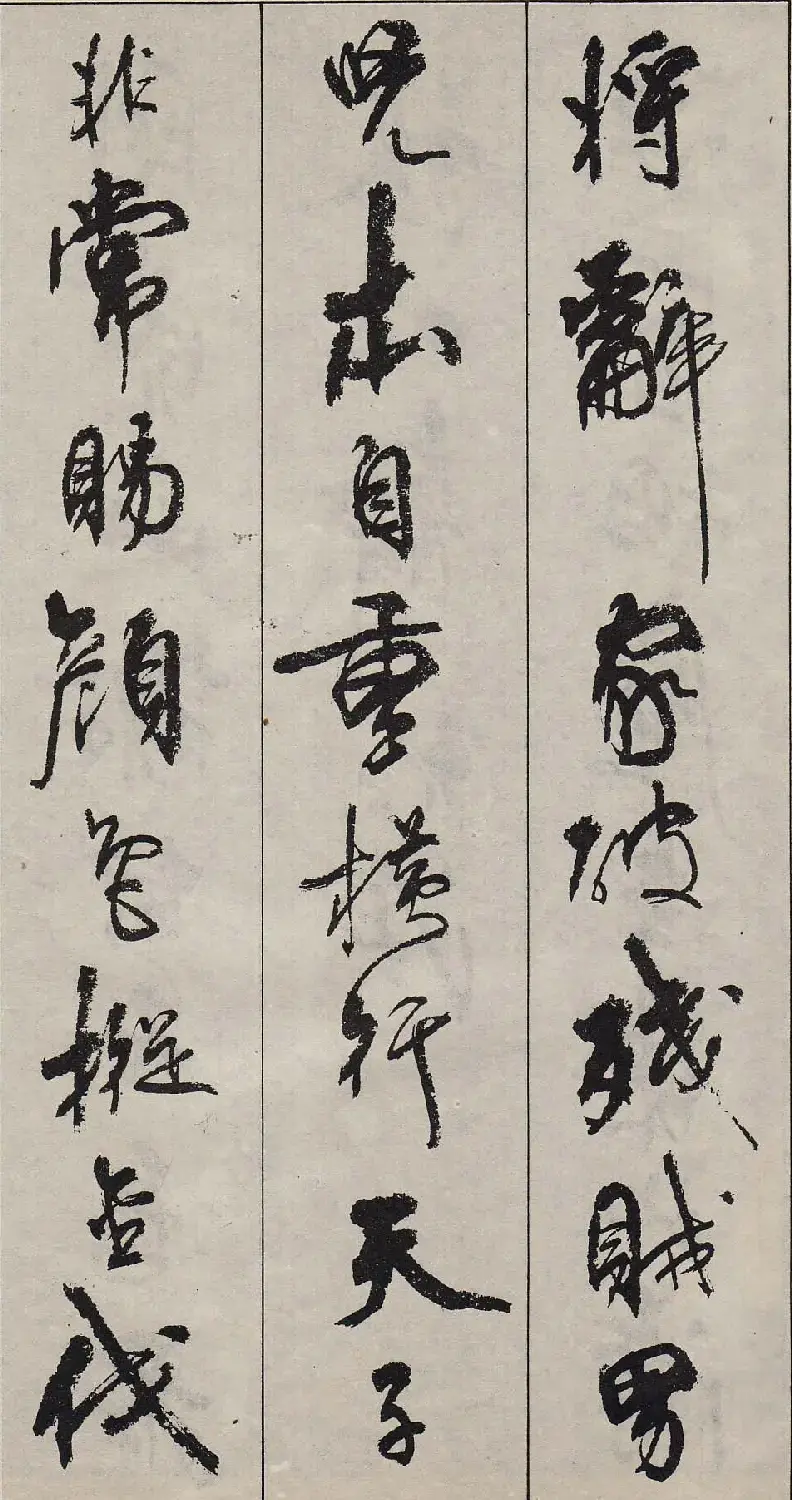 将辭家破殘賊男
兒本自重橫行天子
非常賜顔色摐金伐